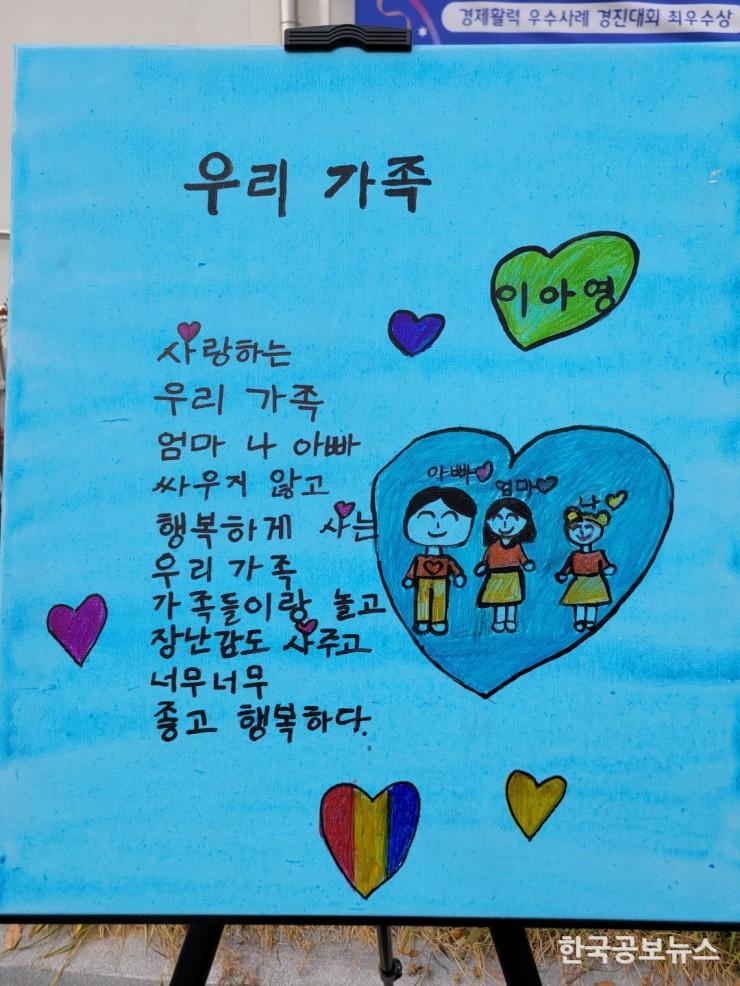 경제활력 우수사례 경진대회 최우수상
우리 가족
이아영
사랑하는
우리 가족
엄마 나 아빠
싸우지 않고
행복하게 사는
우리 가족
가족들이랑 놀고
장난감도 사주고
너무너무
좋고 행복하다.
아빠
엄마
나
한국공보뉴스